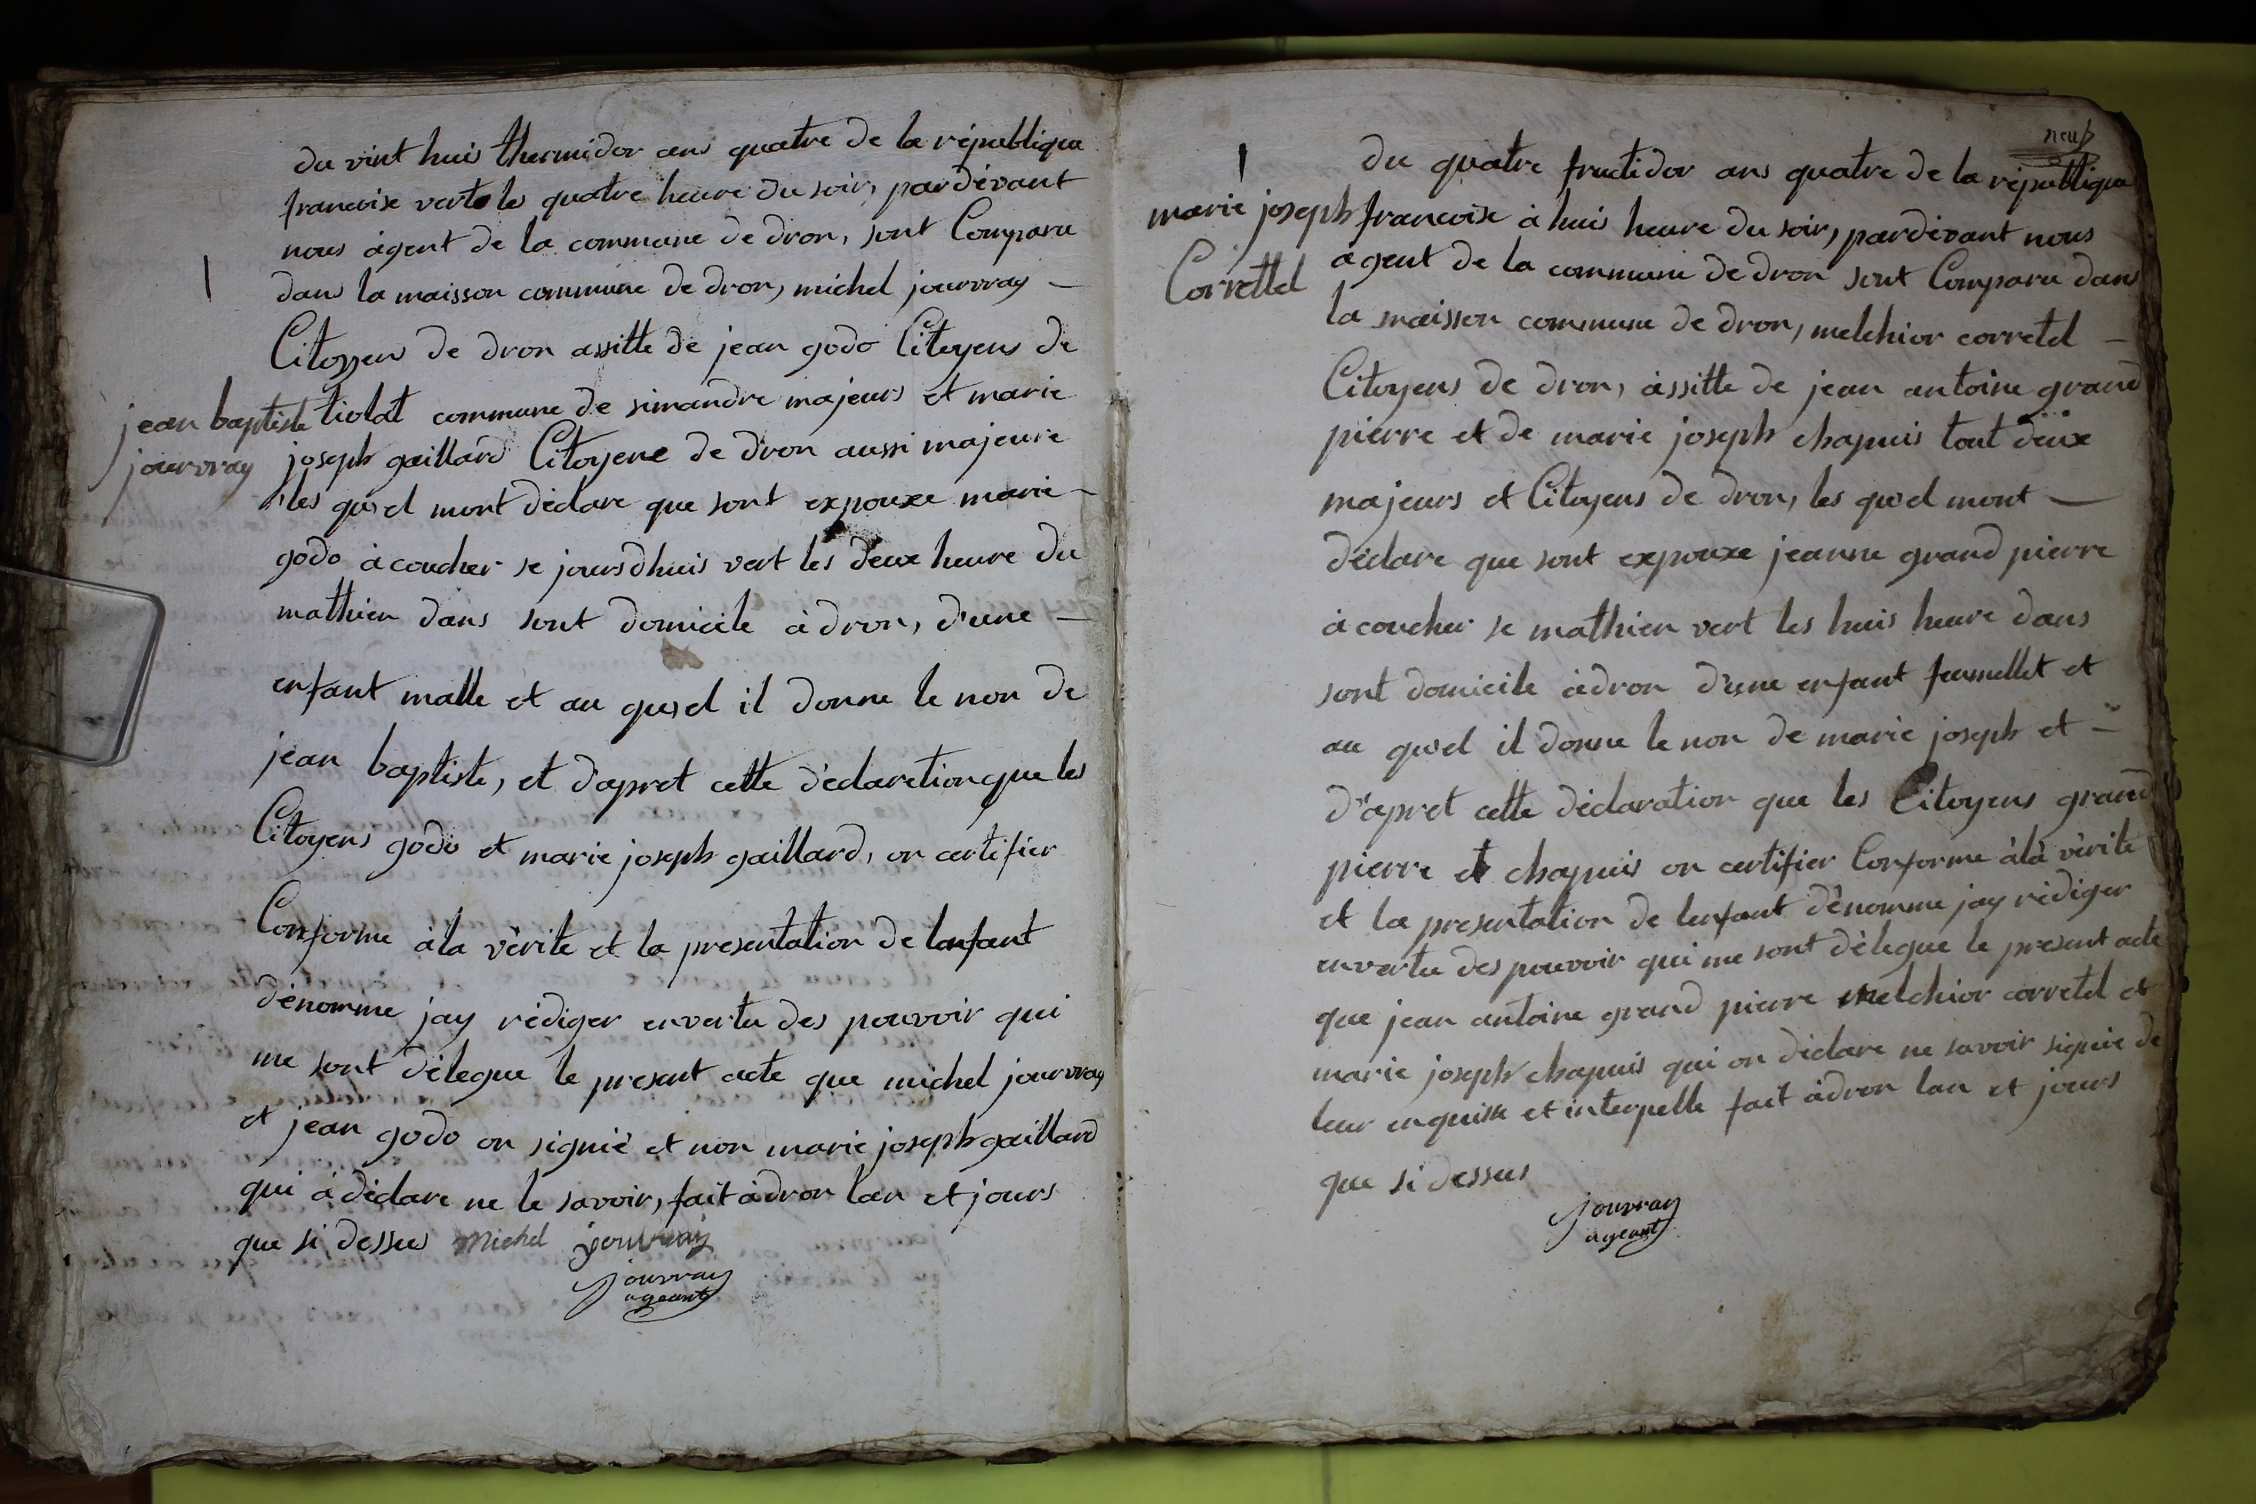 du vint huis thermidor ans quatre de la républiqua
francoise verte les quatre heure du soir, pardevant
nous àgent de la commune de dron, sont Comparu
dans la maisson commune de dron, michel jourvray
Citoyens de dron assitte de jean godo Citoyens de
jean baptiste
jourvray
tiolat commune de simandre majeurs et marie
joseph gaillard Citoyene de dron aussi majeure
les quel mont déclare que sont expouxe marie
godo à coucher se joursdhuis vert les deux heure du
mathien dans sont domicile à dron, d'une
enfant malle et au quel il donne le non de
jean baptiste, et d'apret cette déclaretion que les
Citoyens godo et marie joseph gaillard, on certifier
Conforme àla vérite et la presentation de lenfant
dénomme jay rédiger envertu des pouvoir qui
me sont délegue le present acte que michel jourvray
et jean godo on signié et non marie joseph gaillard
qui à déclare ne le savoir, fait àdron lan et jours
que si dessus Michel jouvray
jouvray
ageant
neuf
marie joseph
Correttel
du quatre fructidor ans quatre de la républiqua
francoise à huis heure du soir, pardevant nous
agent de la commune de dron sont Comparu dans
la maisson commune de dron, melchior corretel
Citoyens de dron, àssitte de jean antoine grand
pierre et de marie joseph chapuis tout deux
majeurs et Citoyens de dron, les quel mont
déclare que sont expouxe jeanne grand pierre
à coucher se mathien vert les huis heure dans
sont domicile àdron d'une enfant feumellet et
au quel il donne le non de marie joseph et
d'apret cette déclaration que les Citoyens grand
pierre et chapuis on certifier Conforme àla vérite
et la presentation de lenfant dénomme jay rédiger
envertu des pouvoir qui me sont délegue le present acte
que jean antoine grand pierre melchior corretel et
marie joseph chapuis qui on déclare ne savoir signie de
leur enquisse et interpelle fait àdron lan et jours
que si dessus
jouvray
ageant